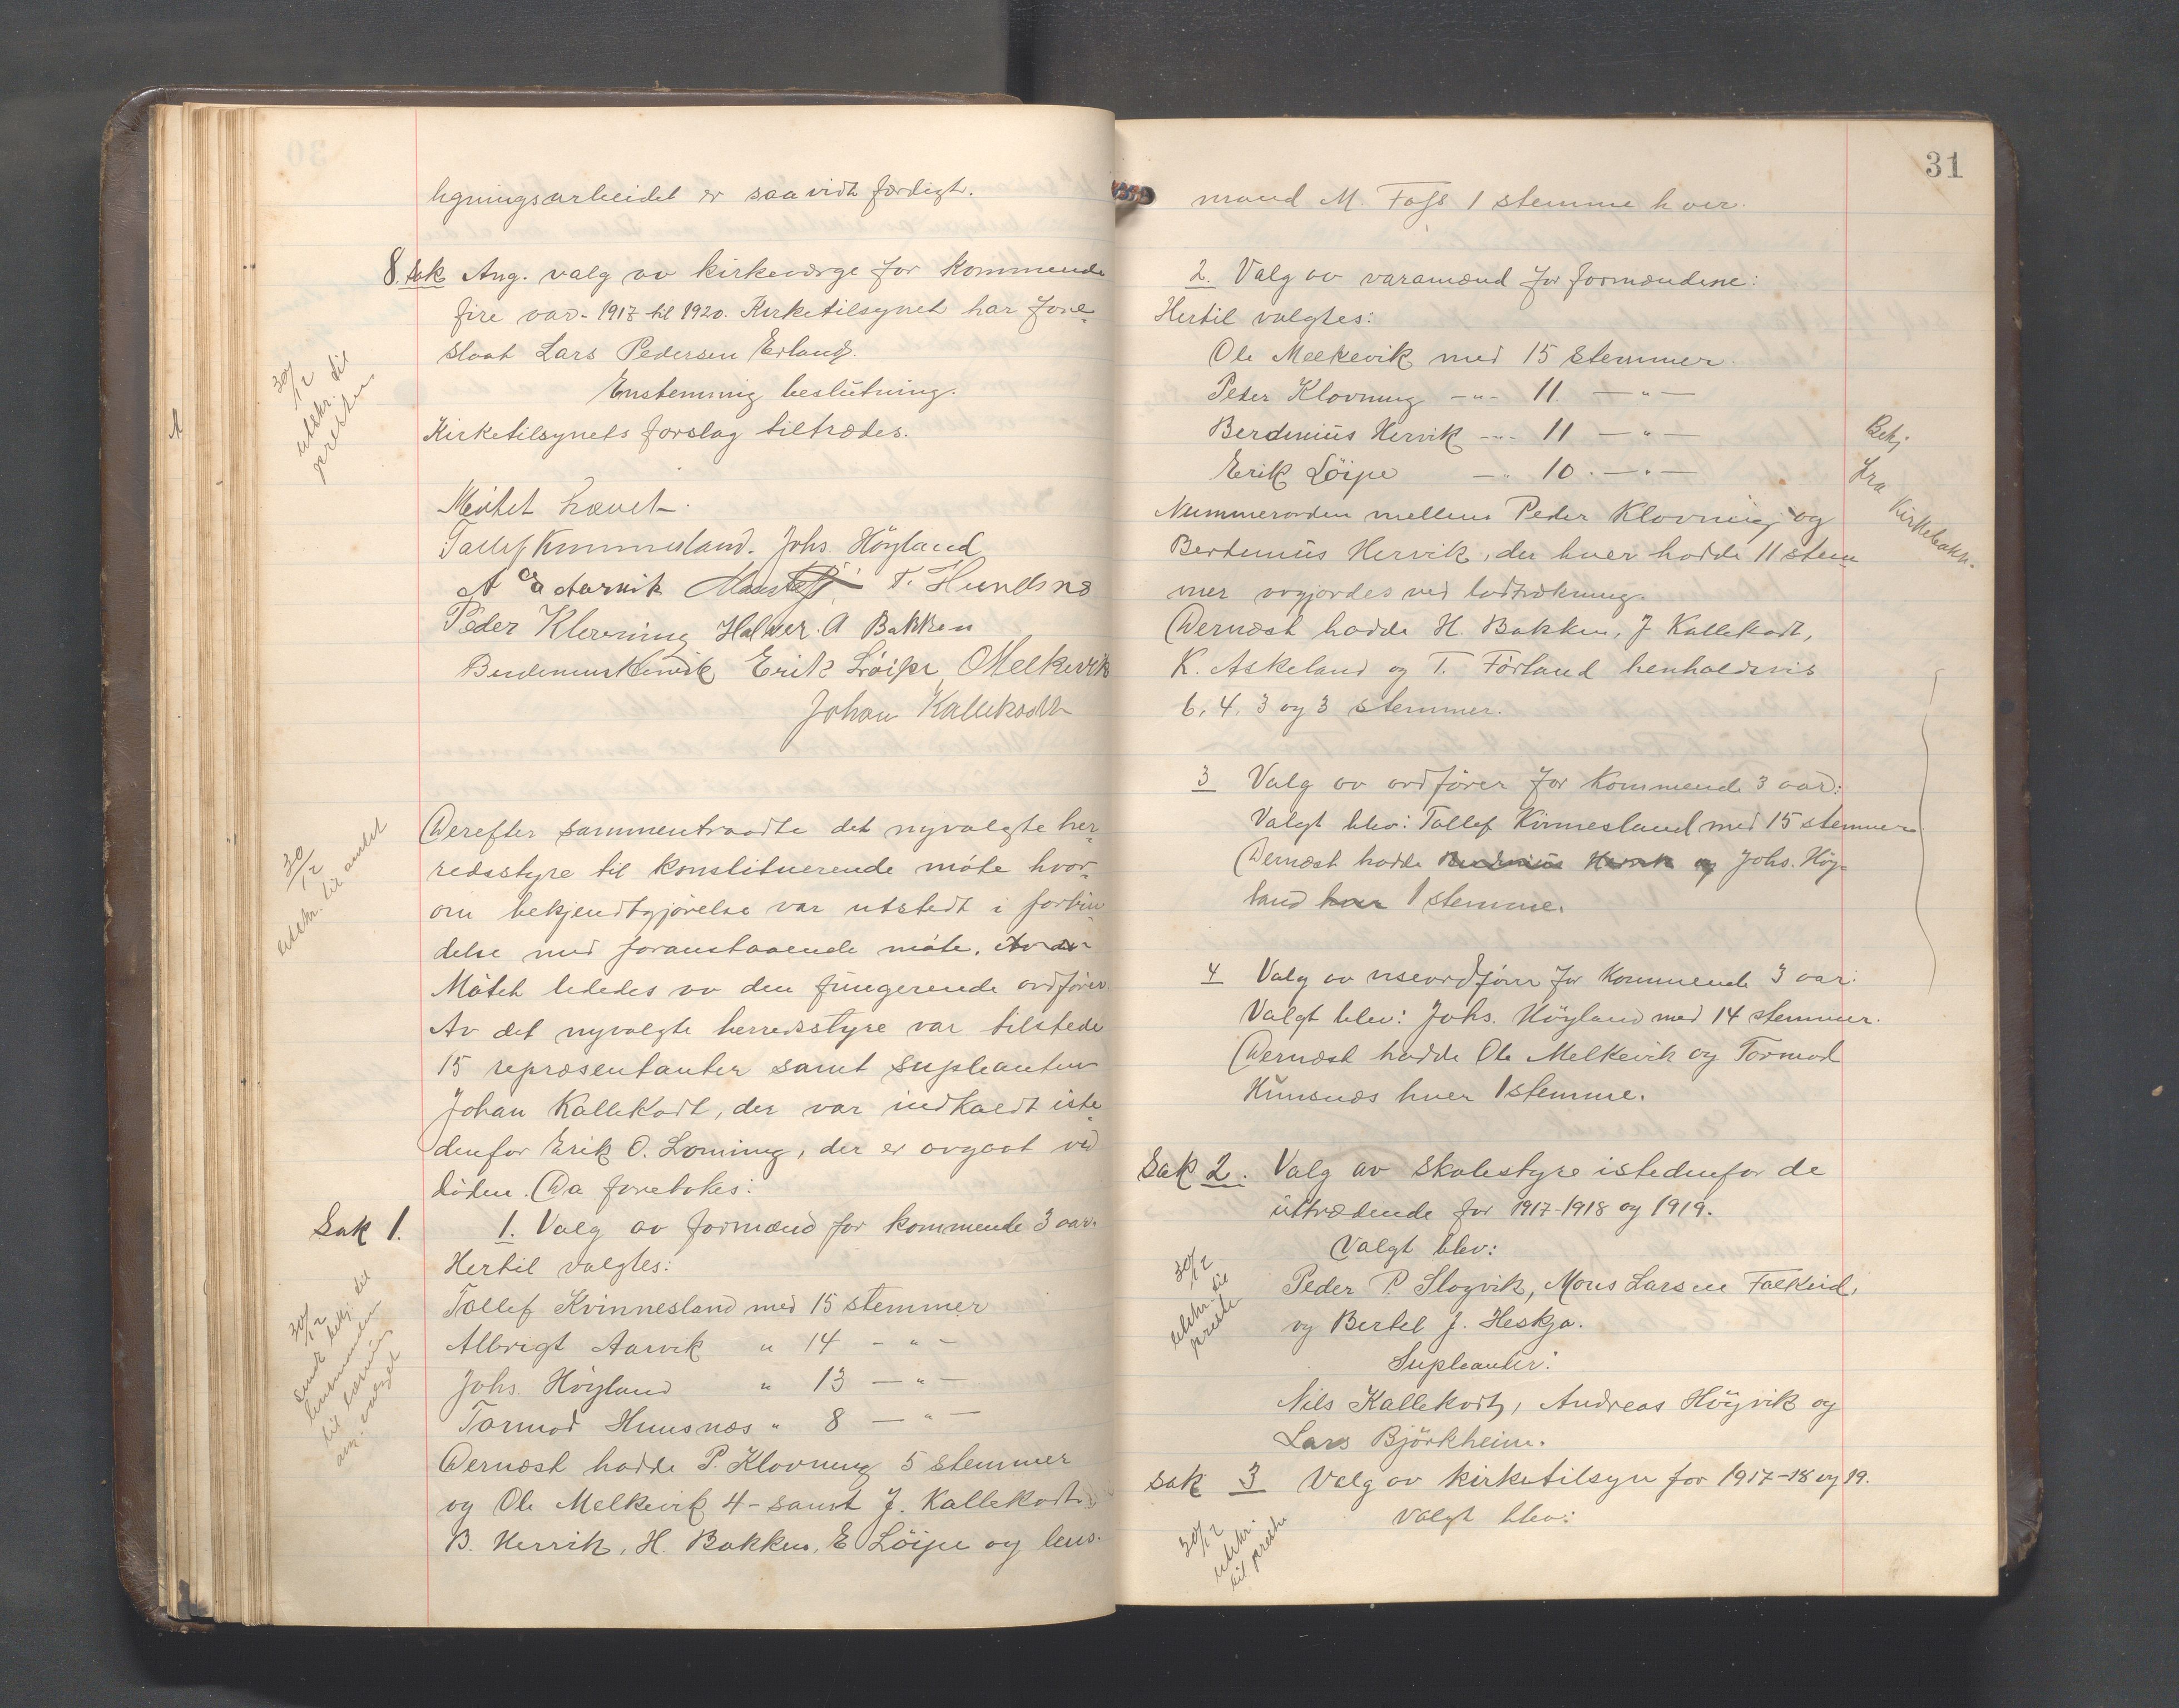 ligningsarbeidet er saavidt færdigt.
8. sak Ang. valg av kirkeværge for kommende
fire aar - 1917 til 1920. Kirketilsynet har fore-
slaat Lars Pedersen Erland.
30/12 utskr. til presten
Enstemmig beslutning.
Kirketilsynets forslag tiltrædes.
Møtet hævet.
Tollef Kvinnesland. Johs. Höyland
A Aarvik T. Hundsnes
Peder Klovning Halver. A Bakken
Berdenius Hervik Erik Löipe O Melkevik
Johan Kallekodt
30/12 utskr. til amtet
Derefter sammentraadte det nyvalgte her-
redsstyre til konstituerende møte hvor-
om bekjendtgjørelse var utstedt i forbin-
delse med foranstaaende møte.
Møtet lededes av den fungerende ordfører
Av det nyvalgte herredsstyre var tilstede
15 repræsentanter samt supleanten
Johan Kallekodt, der var indkaldt iste-
denfor Erik O. Lonning, der er avgaat ved
døden. Da foretokes:
Sak 1. 1. Valg av formænd for kommende 3 aar.
Hertil valgtes:
Tollef Kvinnesland med 15 stemmer
Albrigt Aarvik " 14 - " -
Johs. Höyland " 13 - " -
Tormod Hunsnæs " 8 - " -
30/12 sendt bekj. til lensmanden til læsning om valget
Dernæst hadde P. Klovning 5 stemmer
og Ole Melkevik 4 - samt J. Kallekodt
B. Hervik, H. Bakken, E Löipe og lens-
31
mand M. Foss 1 stemme hver.
2. Valg av varamænd for formændene:
Hertil valgtes:
Ole Melkevik med 15 stemmer
Peder Klovning - " - 11. - " -
Berdinius Hervik - " - 11 - " -
Erik Löipe - " 10. - " -
Bekj.
fra
Kirkebakk.
Nummerorden mellem Peder Klovning og
Berdinius Hervik, der hver hadde 11 stem-
mer avgjordes ved lodtrækning.
Dernæst hadde H. Bakken, J Kallekodt,
K. Askeland og T. Førland henholdsvis
6, 4, 3 og 3 stemmer.
3 Valg av ordfører for kommende 3 aar:
Valgt blev: Tollef Kvinnesland med 15 stemmer.
Dernæst hadde Berdinius Hervik og Johs. Höy-
land hver 1 stemme.
4 Valg av viseordfører for kommende 3 aar:
Valgt blev: Johs. Höyland med 14 stemmer.
Dernæst hadde Ole Melkevik og Tormod
Hunsnæs hver 1 stemme.
Sak 2. Valg av skolestyre istedenfor de
uttrædende for 1917-1918 og 1919.
Valgt blev:
30/12 utskr. til presten
Peder P. Slogvik, Mons Larsen Falkeid,
og Bertel J. Heskja.
Supleanter:
Nils Kallekodt, Andreas Höyvik og
Lars Björkheim.
Sak 3 Valg av kirketilsyn for 1917-18 og 19.
Valgt blev:
30/12 utskr. til presten